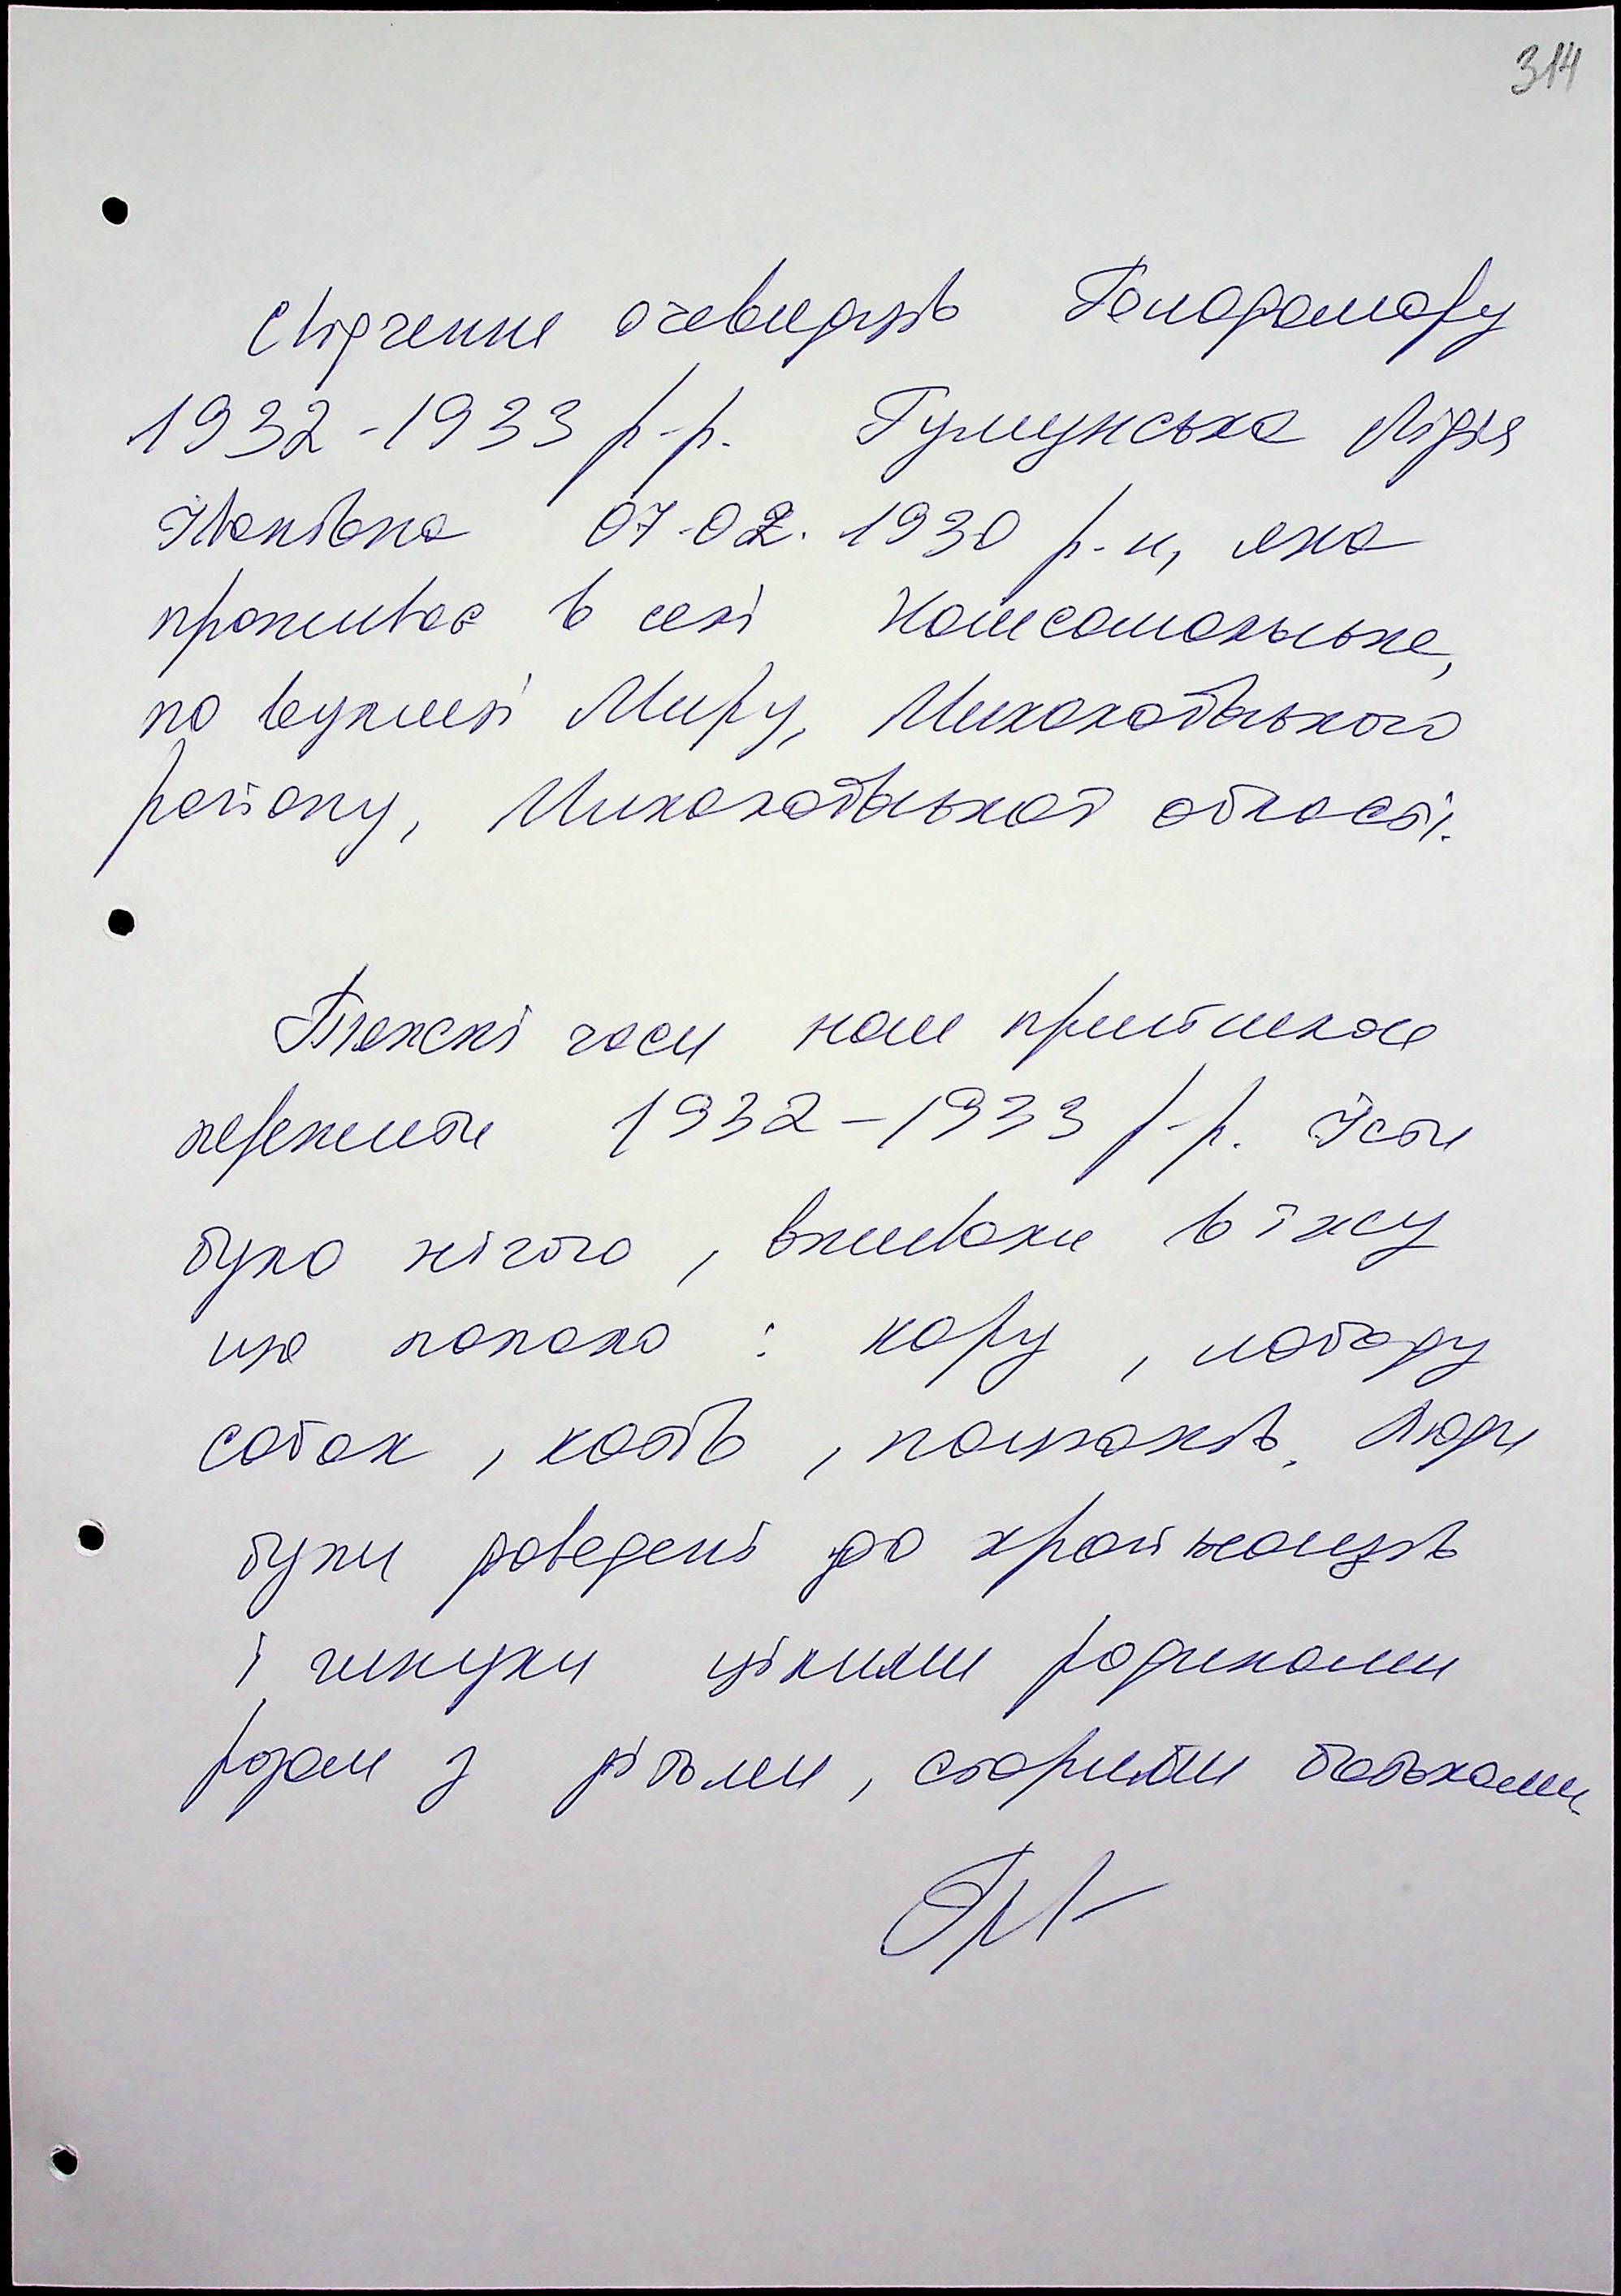 314
Свідчення очевидців Голодомору
1932-1933 р-р. Гумунська Лідія
Іванівна 07-02. 1930 р-н, яка
проживає в селі Комсомольське,
по вулиці Миру, Миколаївського
району, Миколаївської області.
Тяжкі часи нам прийшлося
пережити 1932-1933 р-р. Їсти
було нічого, вживали в їжу
що попало: кору, лободу
собак, котів, пацюків. Люди
були доведені до крайнощів
і гинули цілими родинами
разом з дітьми, старими батьками